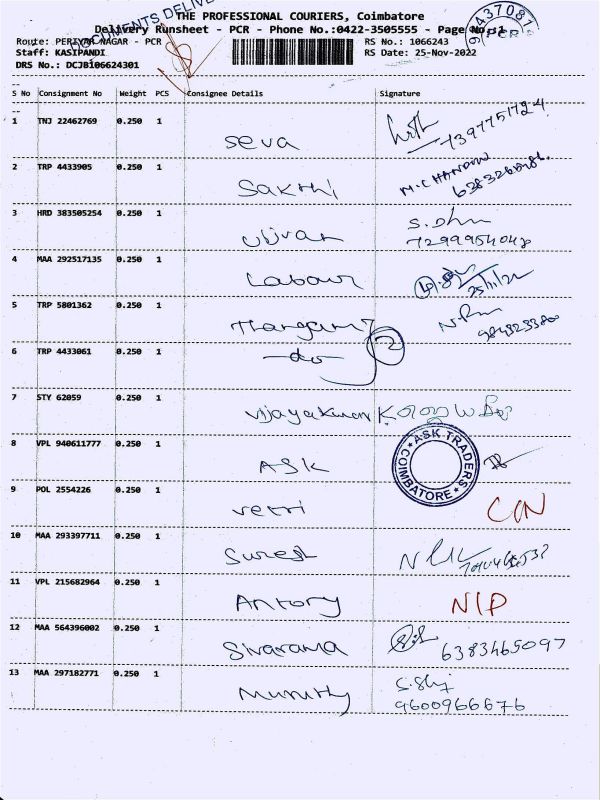 THE PROFESSIONAL COURIERS, Coimbatore
DOCUMENTS DELIVE
Delivery Runsheet - PCR - Phone No.:0422-3505555 - Page No.:1
Route: PERIYAR NAGAR - PCR
RS No.: 1066243
PCR
Staff: KASIPANDI
RS Date: 25-Nov-2022
DRS No.: DCJB106624301
S No Consignment No Weight PCS Consignee Details Signature
1 TNJ 22462769 0.250 1 Seva
2 TRP 4433905 0.250 1 Sakthi M.CHANDRU
3 HRD 383505254 0.250 1 Ujivan S.Dhu
7299954048
4 MAA 292517135 0.250 1 Labour 25/11/22
5 TRP 5801362 0.250 1 Thangam
6 TRP 4433061 0.250 1 -do- 2
7 STY 62059 0.250 1 Vijayakumar
8 VPL 940611777 0.250 1 ASK
ASK TRADERS
COIMBATORE
9 POL 2554226 0.250 1 vetri C/N
10 MAA 293397711 0.250 1 Suresh
11 VPL 215682964 0.250 1 Antony N/P
12 MAA 564396002 0.250 1 Sivarama 6383465097
13 MAA 297182771 0.250 1 Murthy
9600966676